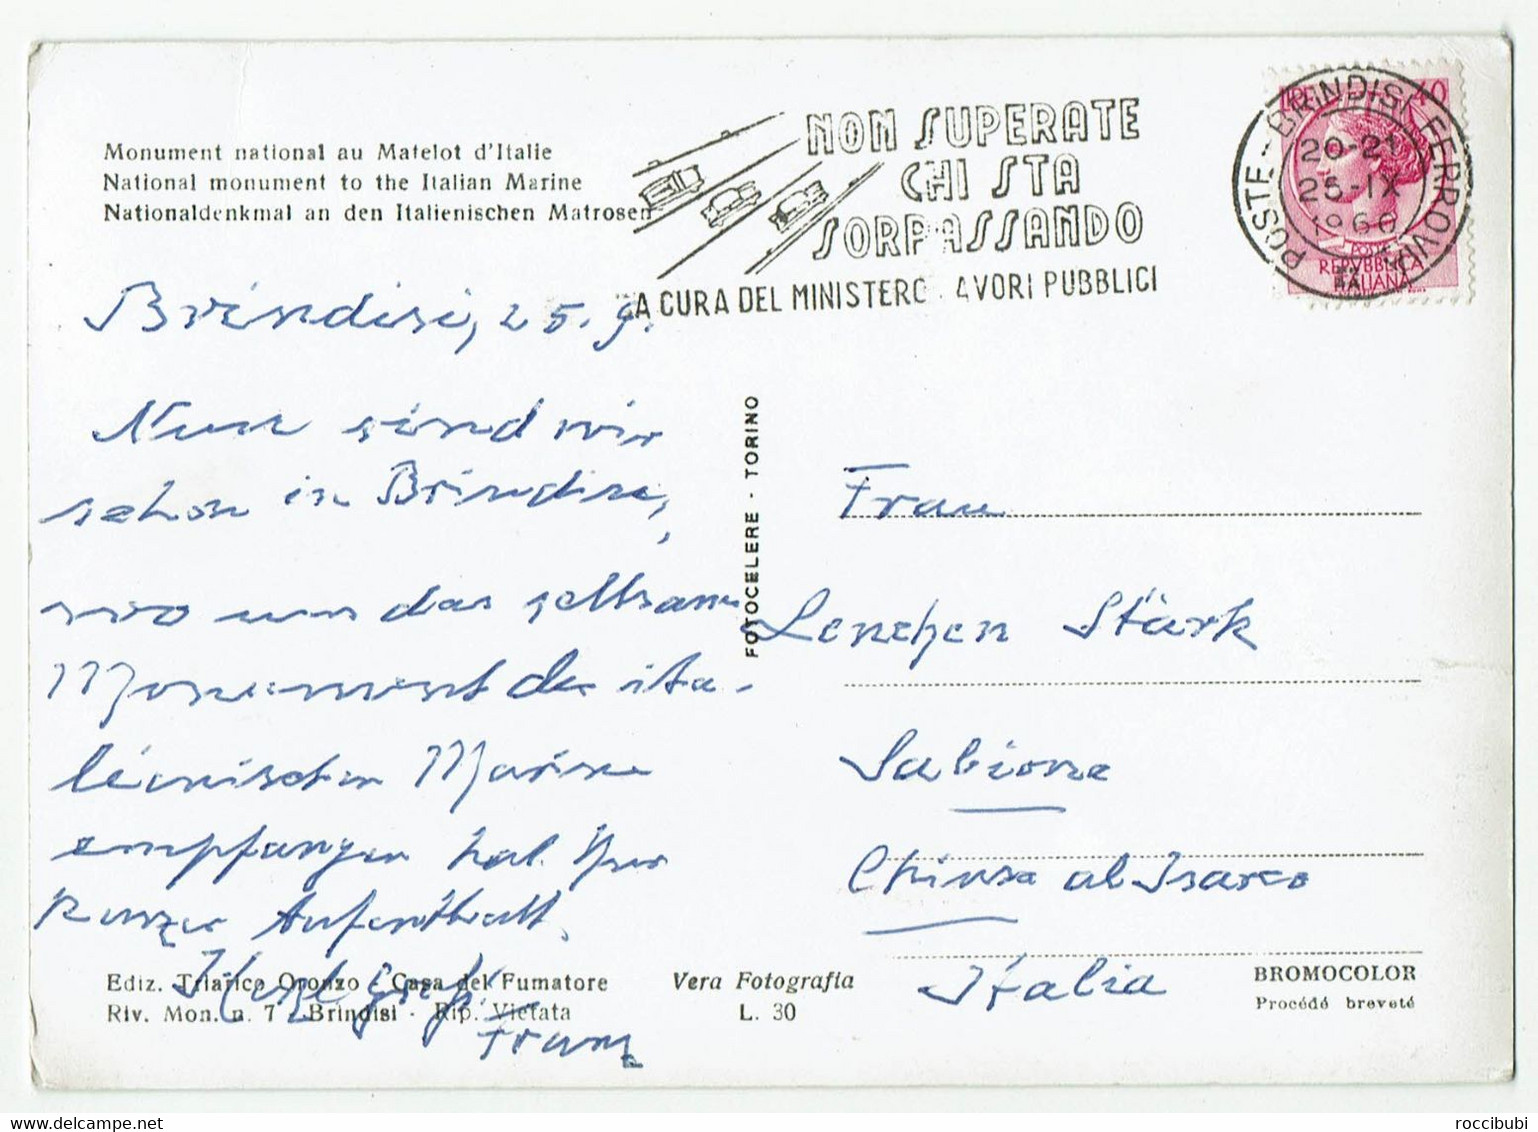 Monument national au Matelot d'Italie
National monument to the Italian Marine
Nationaldenkmal an den Italienischen Matrosen
NON SUPERATE
CHI STA
SORPASSANDO
A CURA DEL MINISTERO AVORI PUBBLICI
POSTE - BRINDISI FERROVIA
20-21
25-IX
1960
LIRE 40
POSTE
REPVBBLICA
ITALIANA
Brindisi, 25.9.
Nun sind wir
schon in Brindisi,
wo uns das seltsame
Monument der ita-
lienischen Marine
empfangen hat. Nur
kurzer Aufenthalt.
Herzlichst
Franz
FOTOCELERE - TORINO
Frau
Lenchen Stärk
Sabiona
Chiusa al Isarco
Italia
Ediz. Triarico Oronzo Casa del Fumatore
Riv. Mon. n. 7 - Brindisi - Rip. Vietata
Vera Fotografia
L. 30
BROMOCOLOR
Procédé breveté
roccibubi